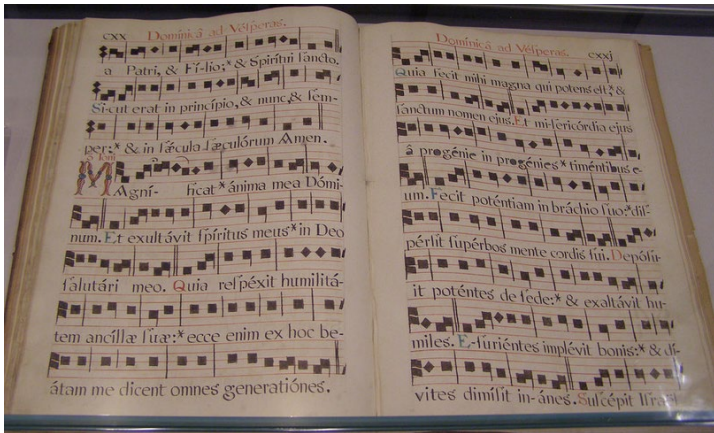 cxx Dominicâ ad Vésperas.
a Patri, & Fí-lio:* & Spirítui sancto.
Si-cut erat in princípio, & nunc, & sem-
per:* & in sǽcula sæculórum Amen.
MAgní- ficat* ánima mea Dómi-
num. Et exultávit spíritus meus* in Deo
salutári meo. Quia respéxit humilitá-
tem ancíllæ suæ:* ecce enim ex hoc be-
átam me dicent omnes generatiónes.
Dominicâ ad Vésperas. cxxj
Quia fecit mihi magna qui potens est:* &
sanctum nomen ejus. Et mi-sericórdia ejus
â progénie in progénies* timéntibus e-
um. Fecit poténtiam in bráchio suo:* dis-
pérsit supérbos mente cordis sui. Depósu-
it poténtes de sede:* & exaltávit hu-
miles. E-suriéntes implévit bonis:* & dí-
vites dimísit in-ánes. Suscépit Israel